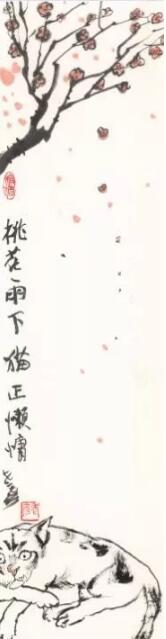 桃花雨下猫正懒慵